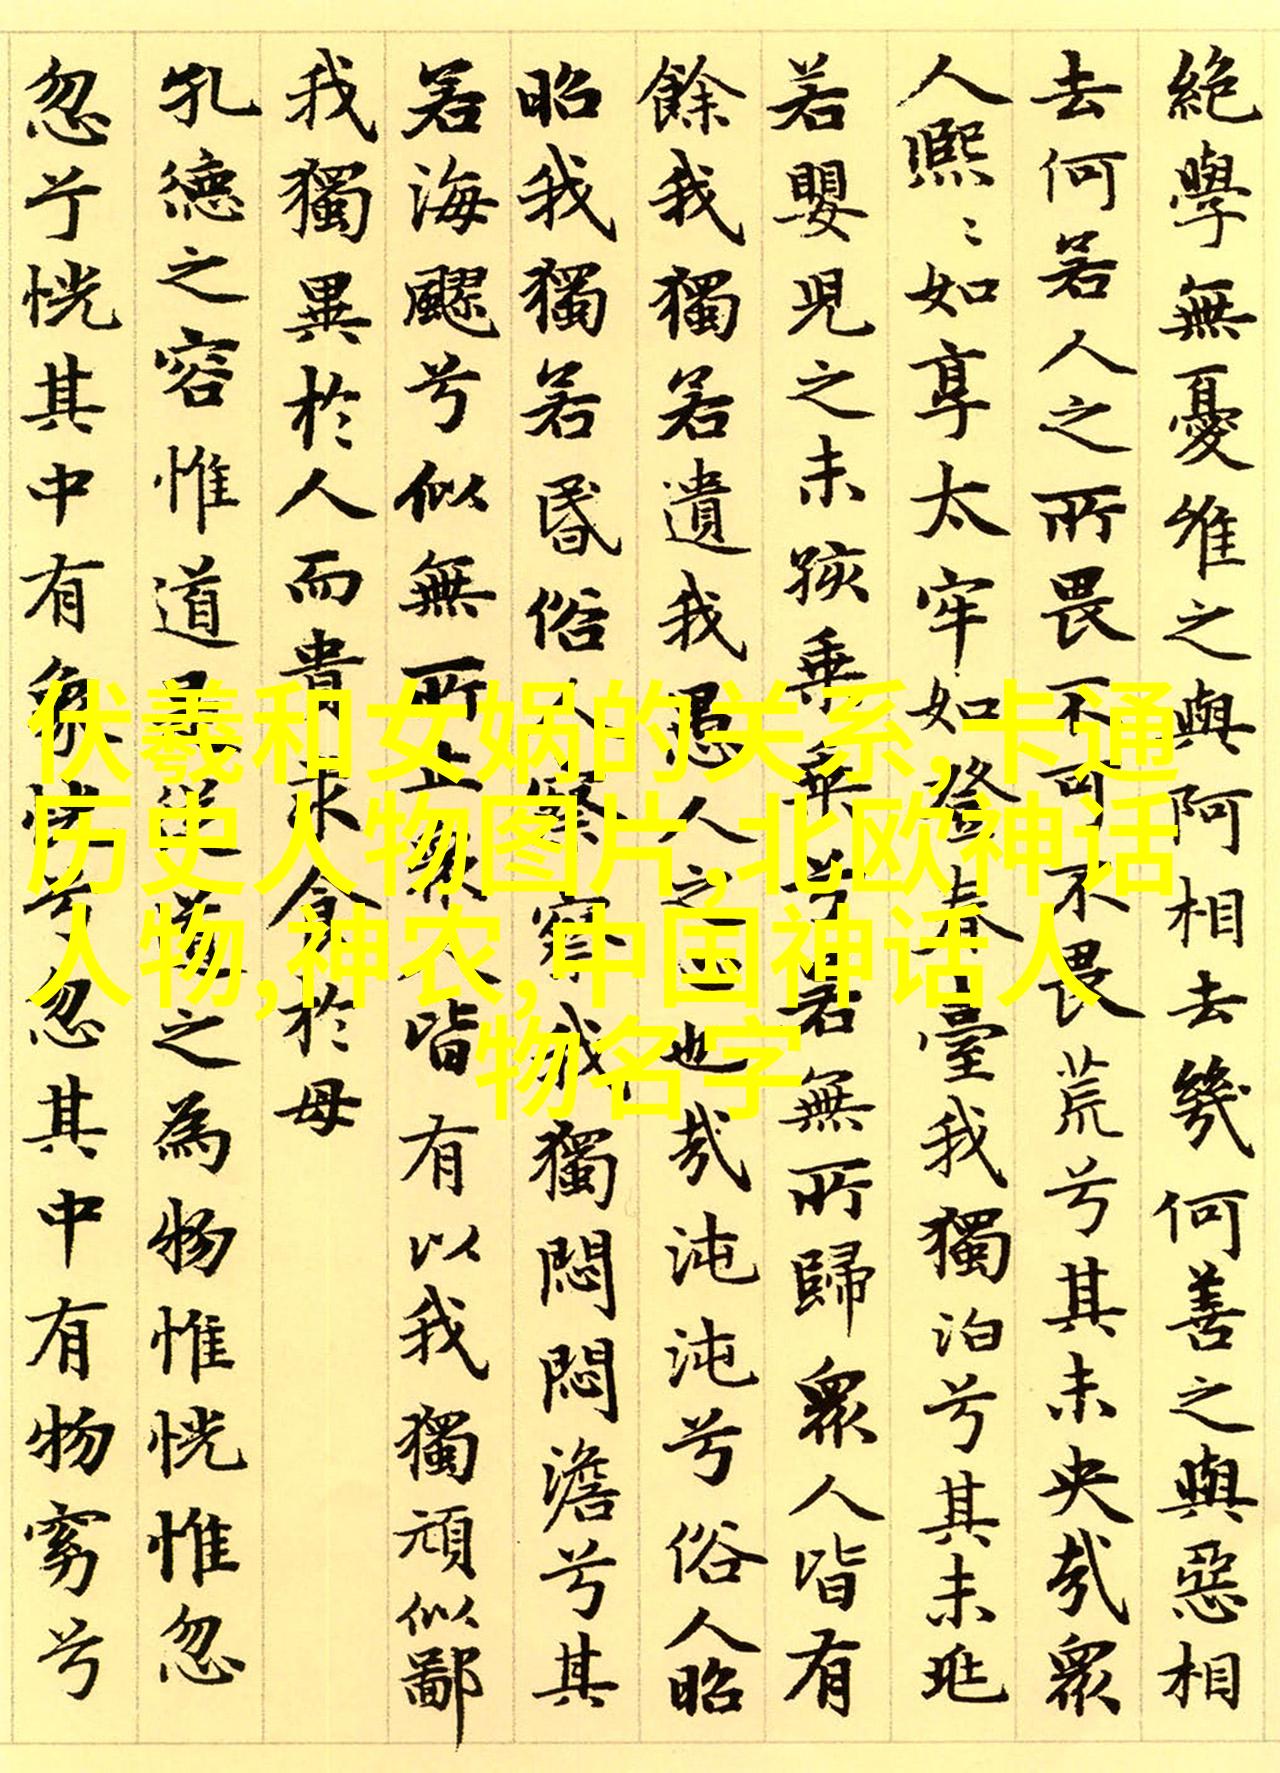 絶學無憂唯之與阿相去幾何善之與惡相
去何若人之所畏不可不畏荒兮其未央哉衆
人熙〻如享太牢如登春臺我獨泊兮其未兆
若嬰兒之未孩乘乘兮若無所歸衆人皆有
餘我獨若遺我愚人之心也哉沌沌兮俗人昭
昭我獨若昏俗人察察我獨悶悶澹兮其
若海飂兮似無所止衆人皆有以我獨頑似鄙
我獨異於人而貴求食於母
孔德之容惟道是從道之為物惟恍惟忽
忽兮恍其中有象恍兮忽其中有物窈兮
伏羲和女娲的关系,卡通
历史人物图片,北欧神话
人物,神农,中国神话人
物名字